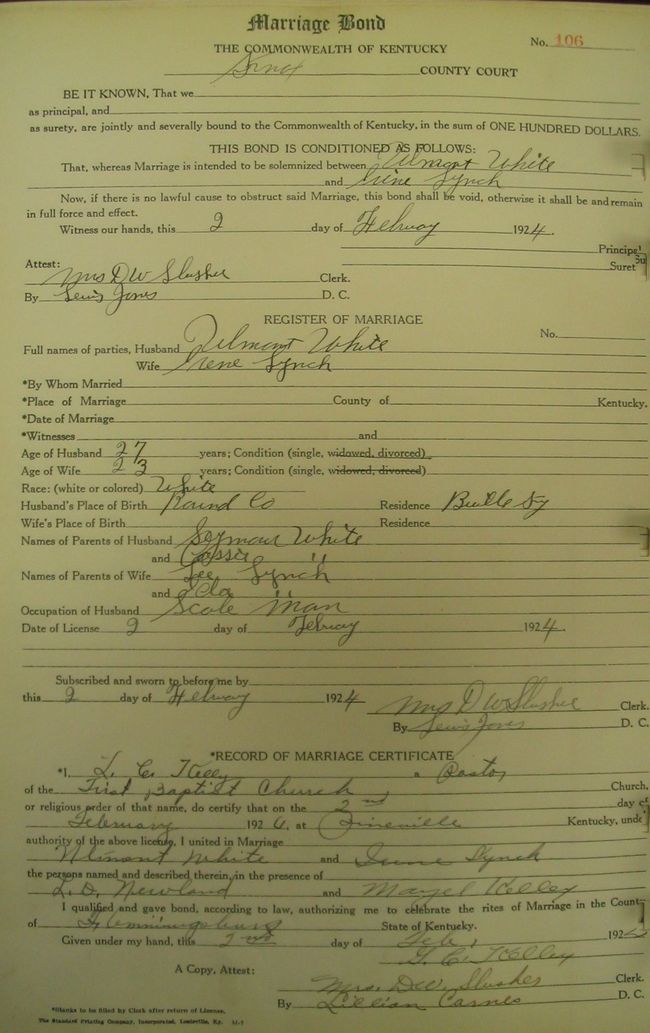 Marriage Bond
THE COMMONWEALTH OF KENTUCKY
No. 106
Knox COUNTY COURT
BE IT KNOWN, That we
as principal, and
as surety, are jointly and severally bound to the Commonwealth of Kentucky, in the sum of ONE HUNDRED DOLLARS.
THIS BOND IS CONDITIONED AS FOLLOWS:
That, whereas Marriage is intended to be solemnized between White
and Irene Lynch
Now, if there is no lawful cause to obstruct said Marriage, this bond shall be void, otherwise it shall be and remain
in full force and effect.
Witness our hands, this 2 day of Febuay 1924.
Principal
Suret
Attest:
Mrs D W Slusher Clerk.
By Lewis Jones D. C.
REGISTER OF MARRIAGE
No.
Full names of parties, Husband White
Wife Irene Lynch
*By Whom Married
*Place of Marriage County of Kentucky.
*Date of Marriage
*Witnesses and
Age of Husband 27 years; Condition (single, widowed, divorced)
Age of Wife 23 years; Condition (single, widowed, divorced)
Race: (white or colored) White
Husband's Place of Birth Co Residence Ky
Wife's Place of Birth Residence
Names of Parents of Husband Seymour White
and "
Names of Parents of Wife Lee Lynch
and "
Occupation of Husband Scale Man
Date of License 2 day of Febuay 1924.
Subscribed and sworn to before me by
this 2 day of Febuay 1924 Mrs D W Slusher Clerk.
By Lewis Jones D. C.
*RECORD OF MARRIAGE CERTIFICATE
*I, L. C. Kelly a Pastor
of the First Baptist Church Church,
or religious order of that name, do certify that on the 2nd day of
February 192 at Pineville Kentucky, unde
authority of the above license, I united in Marriage
White and Lynch
the persons named and described therein, in the presence of
L. D. Newland and Kelley
I qualified and gave bond, according to law, authorizing me to celebrate the rites of Marriage in the Count
of State of Kentucky.
Given under my hand, this 2nd day of Feb, 192
C. Kelley
A Copy, Attest:
Mrs. D.W. Slusher Clerk.
By Lillian Carnes D. C.
*Blanks to be filled by Clerk after return of License.
The Standard Printing Company, Incorporated, Louisville, Ky.